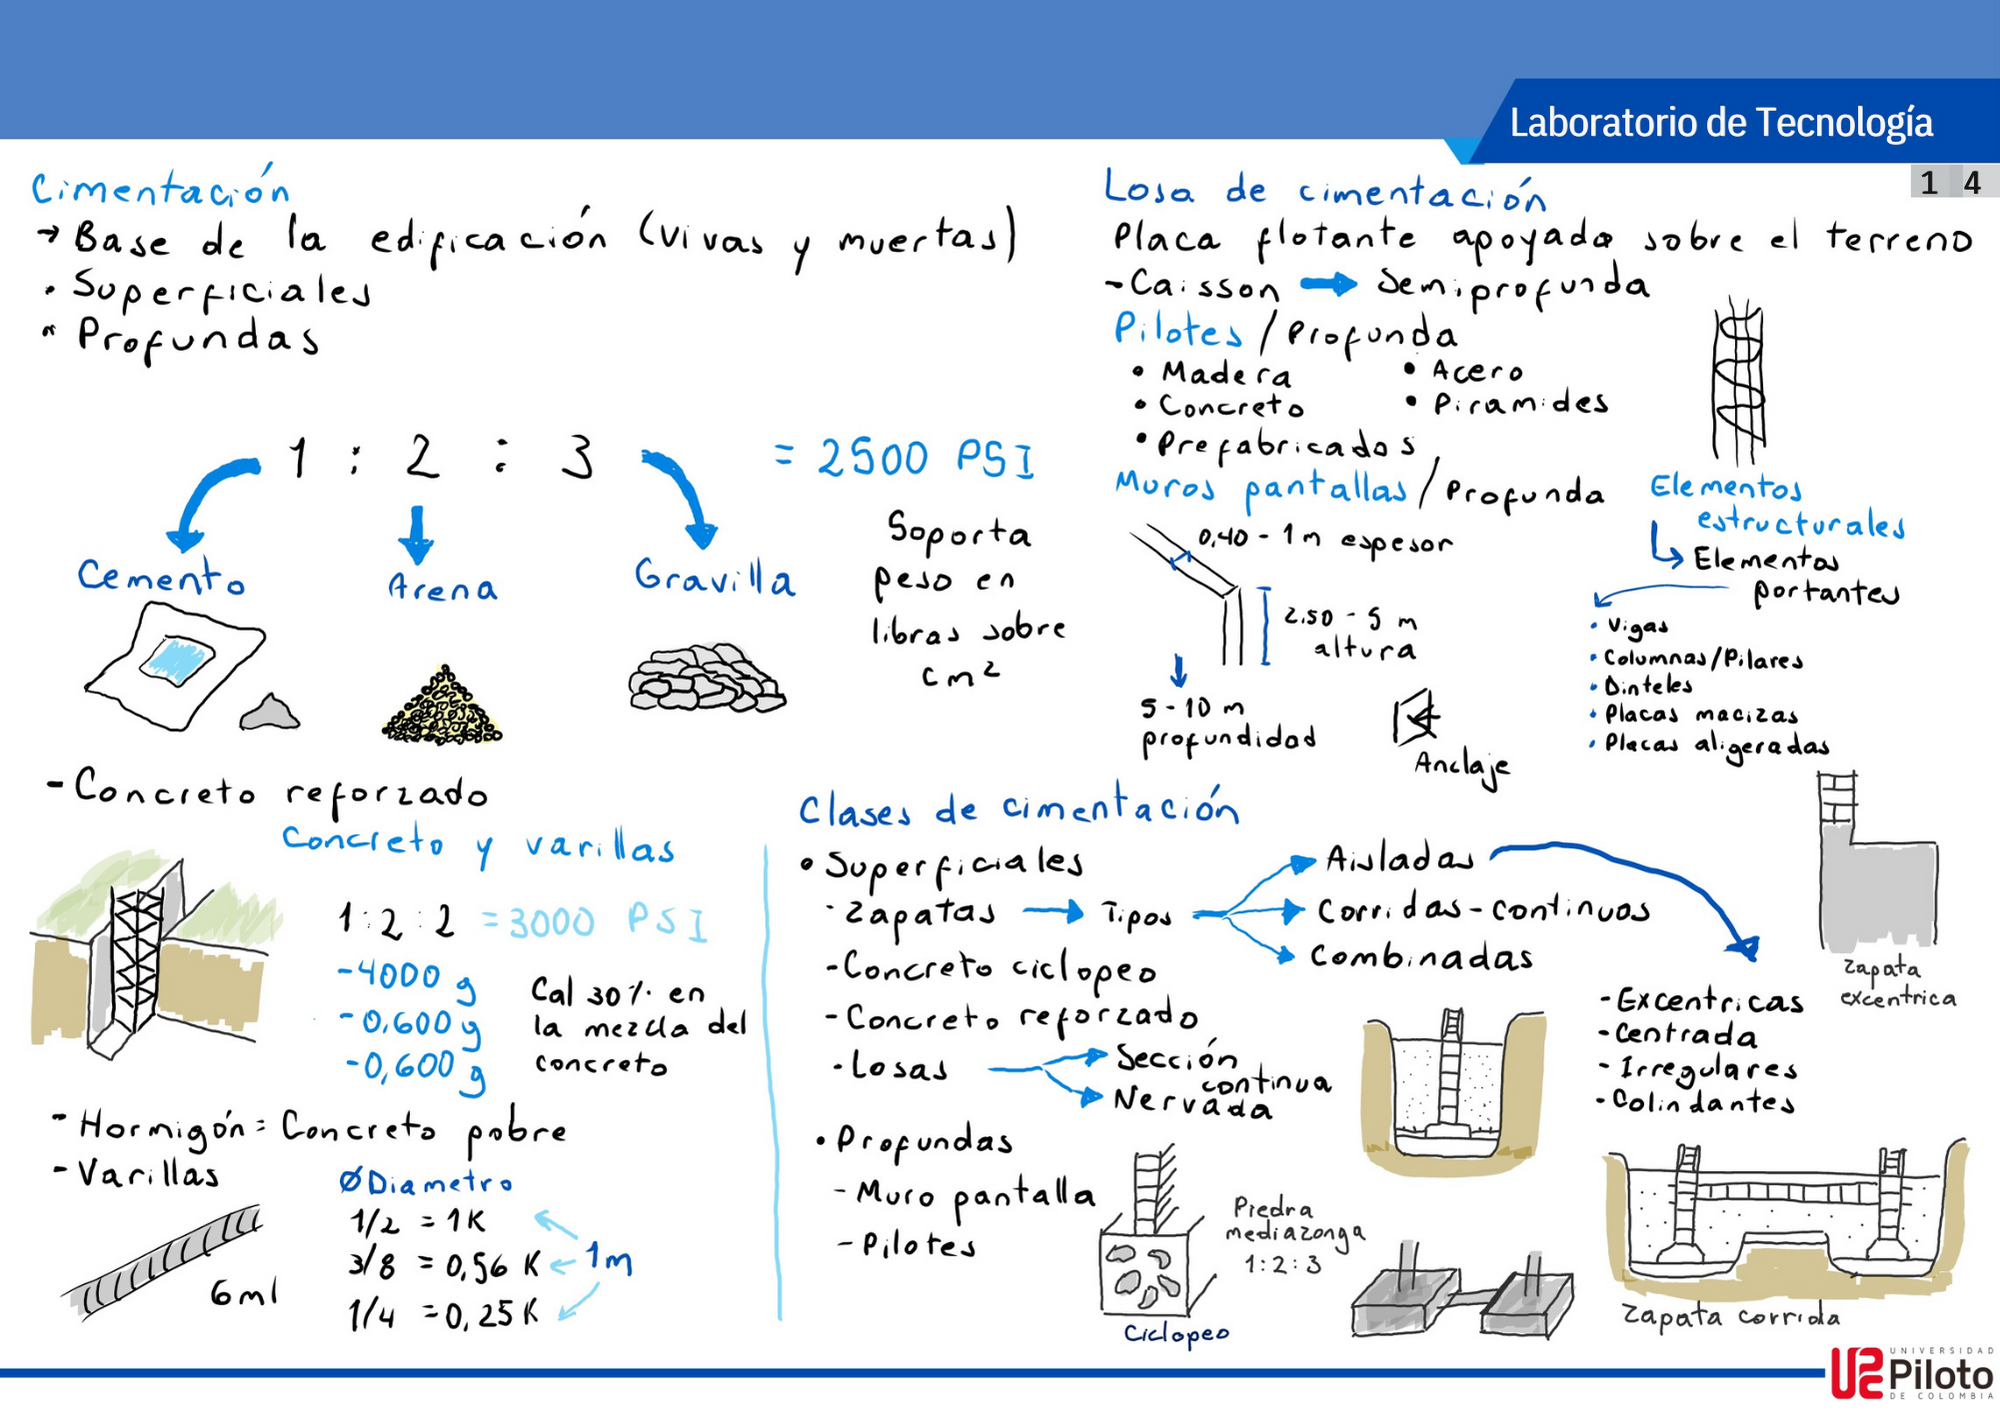 Laboratorio de Tecnología
1 4
Cimentación
→ Base de la edificación (vivas y muertas)
· Superficiales
" Profundas
1 : 2 : 3 = 2500 PSI
Cemento
Arena
Gravilla
Soporta
peso en
libras sobre
cm²
- Concreto reforzado
Concreto y varillas
1:2:2 = 3000 PSI
-4000 g
-0,600 g
-0,600 g
Cal 30% en
la mezcla del
concreto
- Hormigón = Concreto pobre
- Varillas
6ml
Ø Diametro
1/2 = 1K
3/8 = 0,56 K
1/4 = 0,25 K
1m
Losa de cimentación
Placa flotante apoyada sobre el terreno
- Caisson → Semiprofunda
Pilotes / Profunda
• Madera
• Concreto
• Prefabricados
• Acero
• Piramides
Muros pantallas / Profunda
0,40 - 1m espesor
2.50 - 5 m
altura
5 - 10 m
profundidad
Anclaje
Elementos
estructurales
Elementos
portantes
• Vigas
• Columnas/Pilares
• Dinteles
• Placas macizas
• Placas aligeradas
Clases de cimentación
• Superficiales
· Zapatas → Tipos
Aisladas
Corridas-continuas
Combinadas
- Concreto ciclopeo
- Concreto reforzado
- Losas
Sección
continua
Nervada
• Profundas
- Muro pantalla
- Pilotes
- Excentricas
- Centrada
- Irregulares
- Colindantes
Zapata
excentrica
Piedra
mediazonga
1:2:3
Ciclopeo
Zapata corrida
UNIVERSIDAD
Piloto
DE COLOMBIA